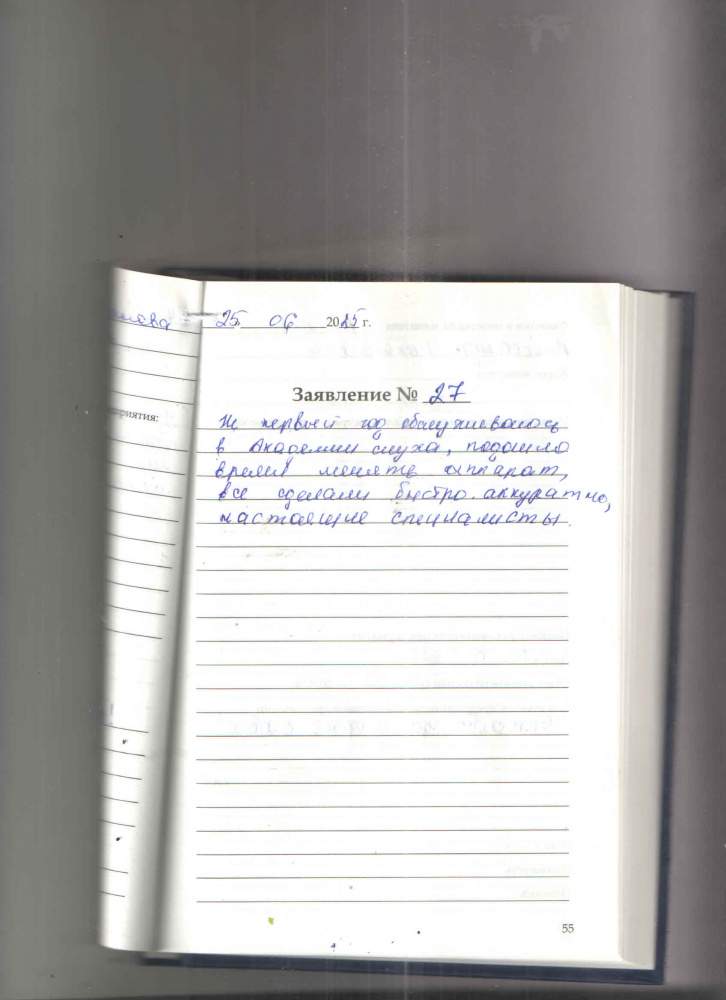 25 06 2025 г.
Заявление № 27
Не первый год обслуживаюсь
в Академии слуха, подошло
время менять аппарат,
все сделали быстро. аккуратно,
настоящие специалисты.
приятия:
55